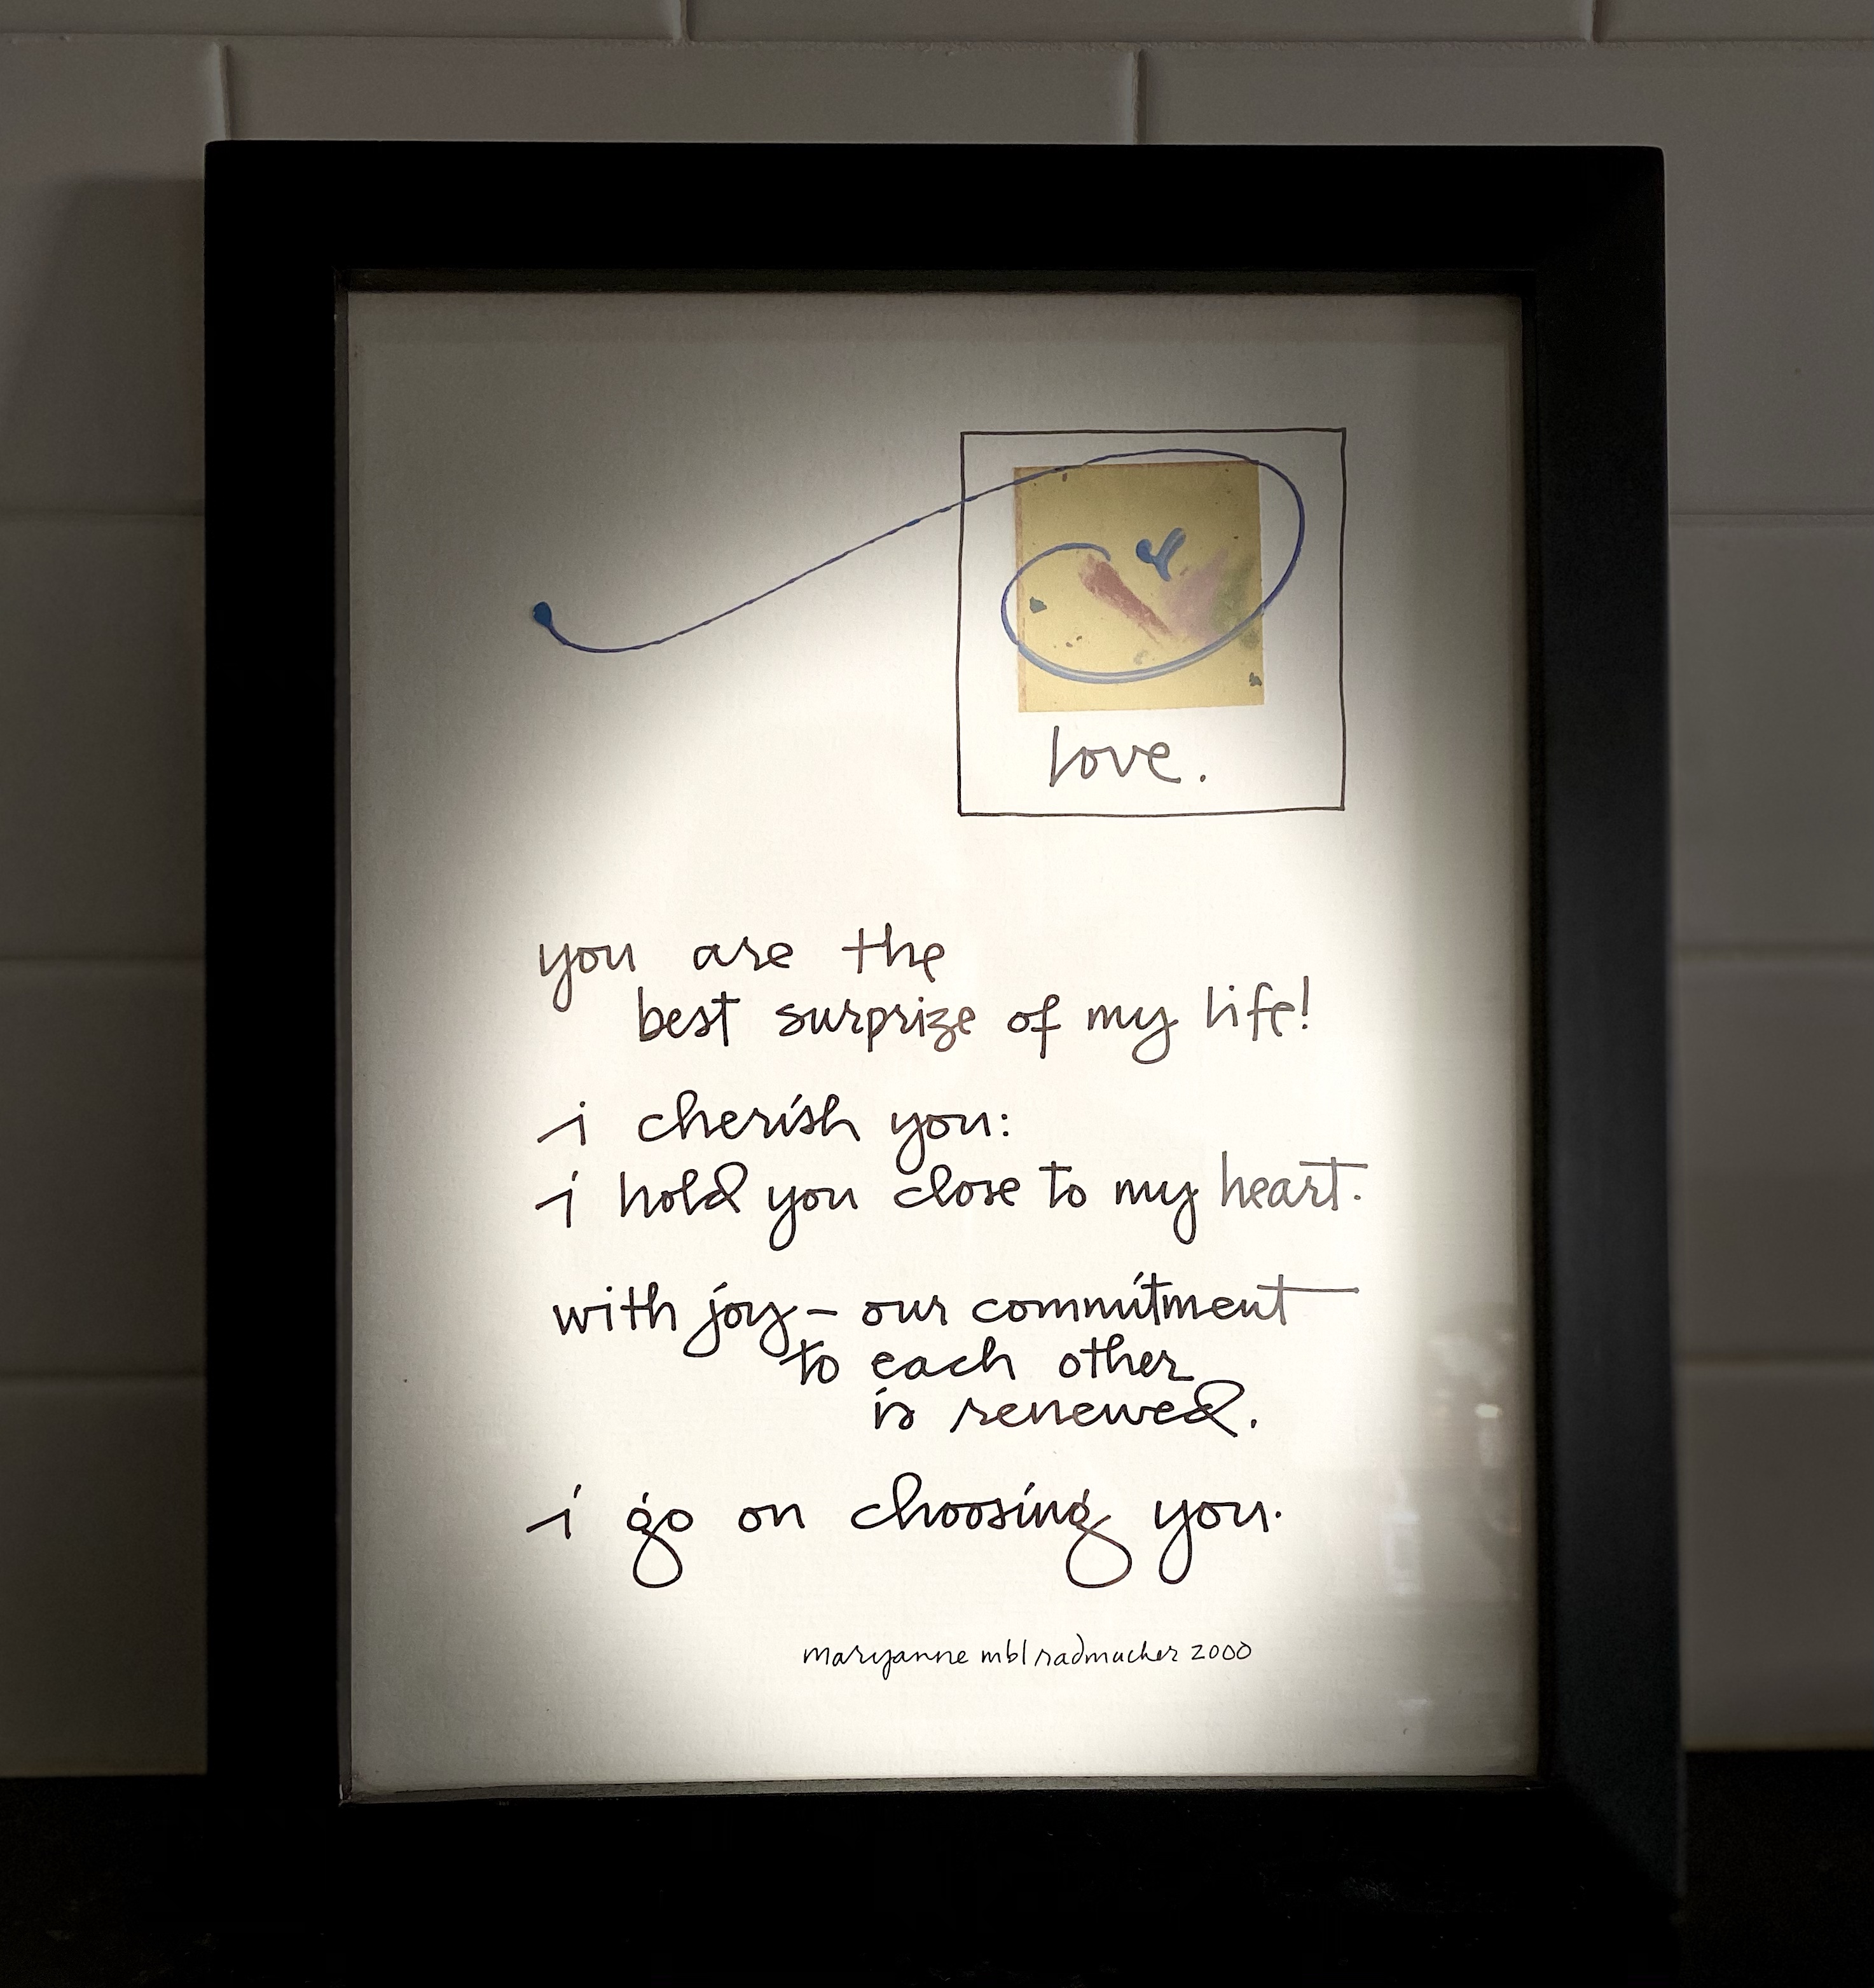 love.
you are the
best surprize of my life!
i cherish you:
i hold you close to my heart.
with joy – our commitment
to each other
is renewed.
i go on choosing you.
maryanne mbl radmacher 2000